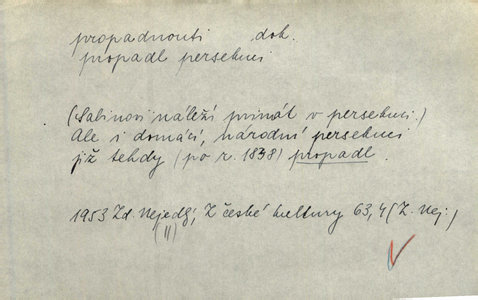 propadnouti dok.
propadl persekuci
(Sabinovi náleží primát v persekuci.)
Ale i domácí, národní persekuci
již tehdy (po r. 1838) propadl.
1953 Zd. Nejedlý, Z české kultury 63, 4 (Z. Nej.)
(11)